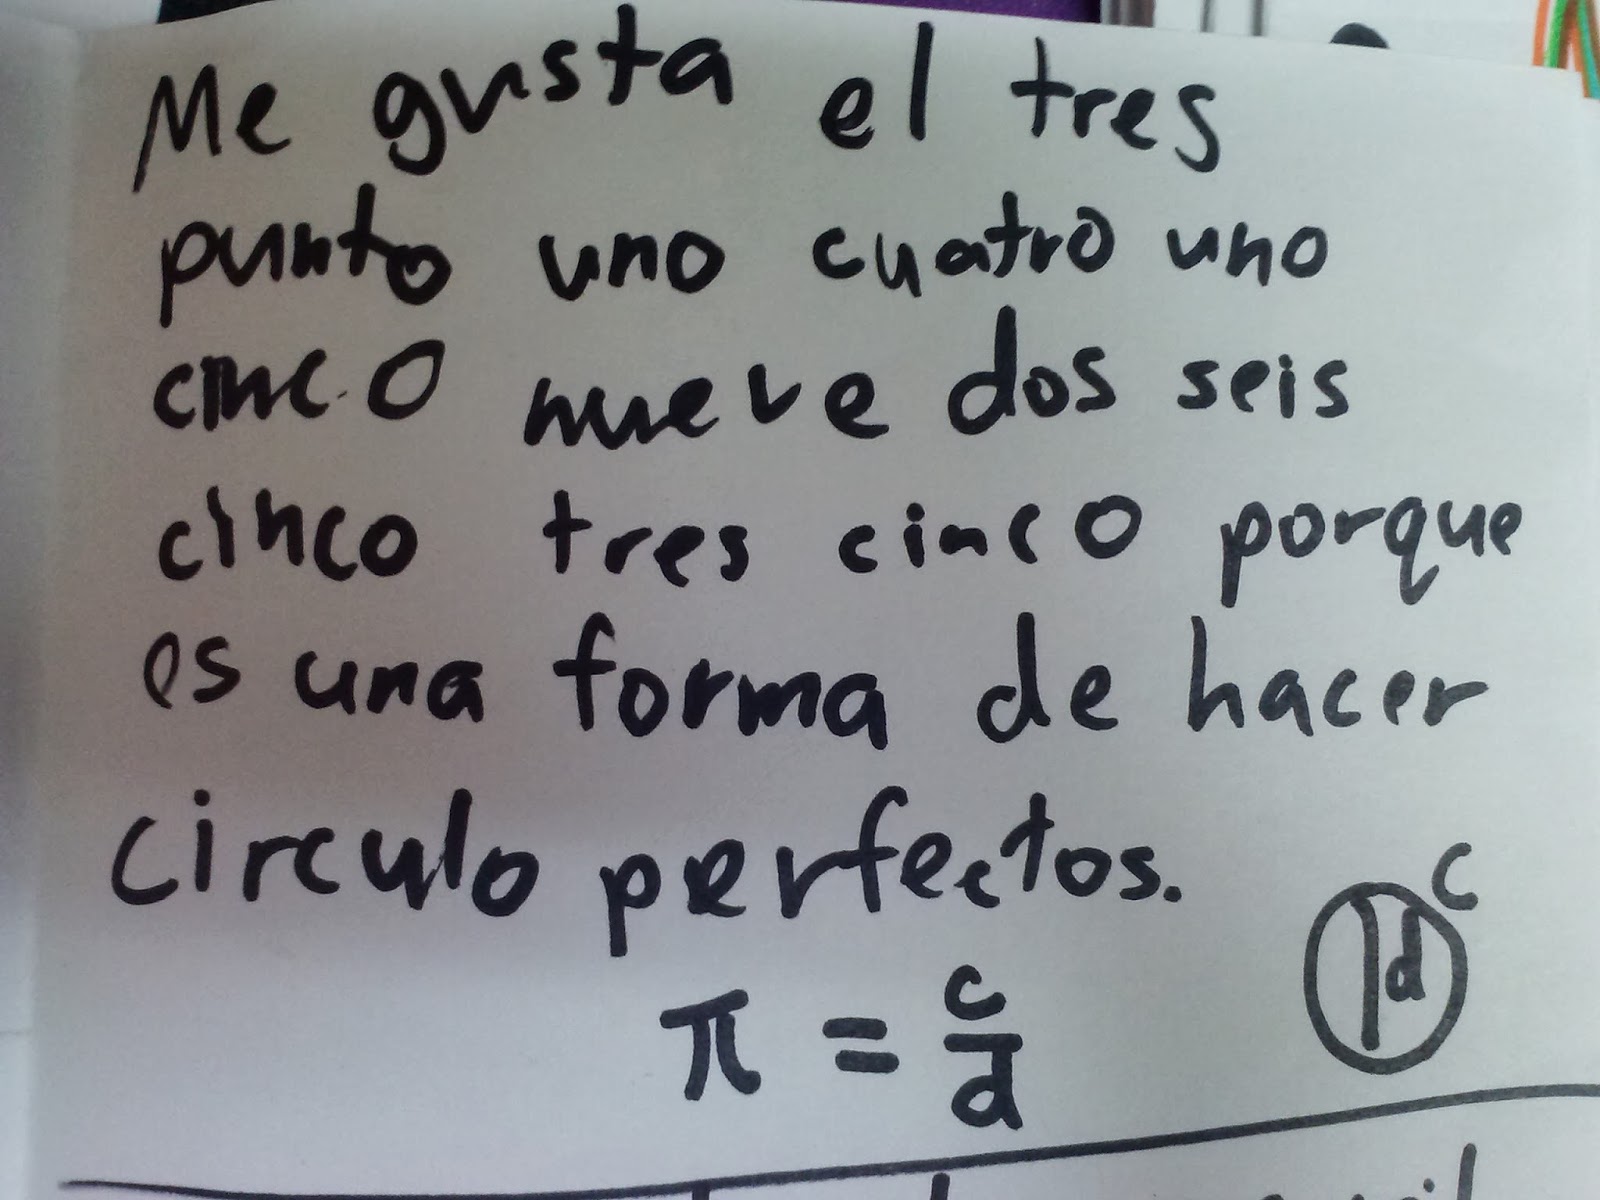 Me gusta el tres
punto uno cuatro uno
cinco nueve dos seis
cinco tres cinco porque
es una forma de hacer
circulo perfectos.
c
d
π = c/d